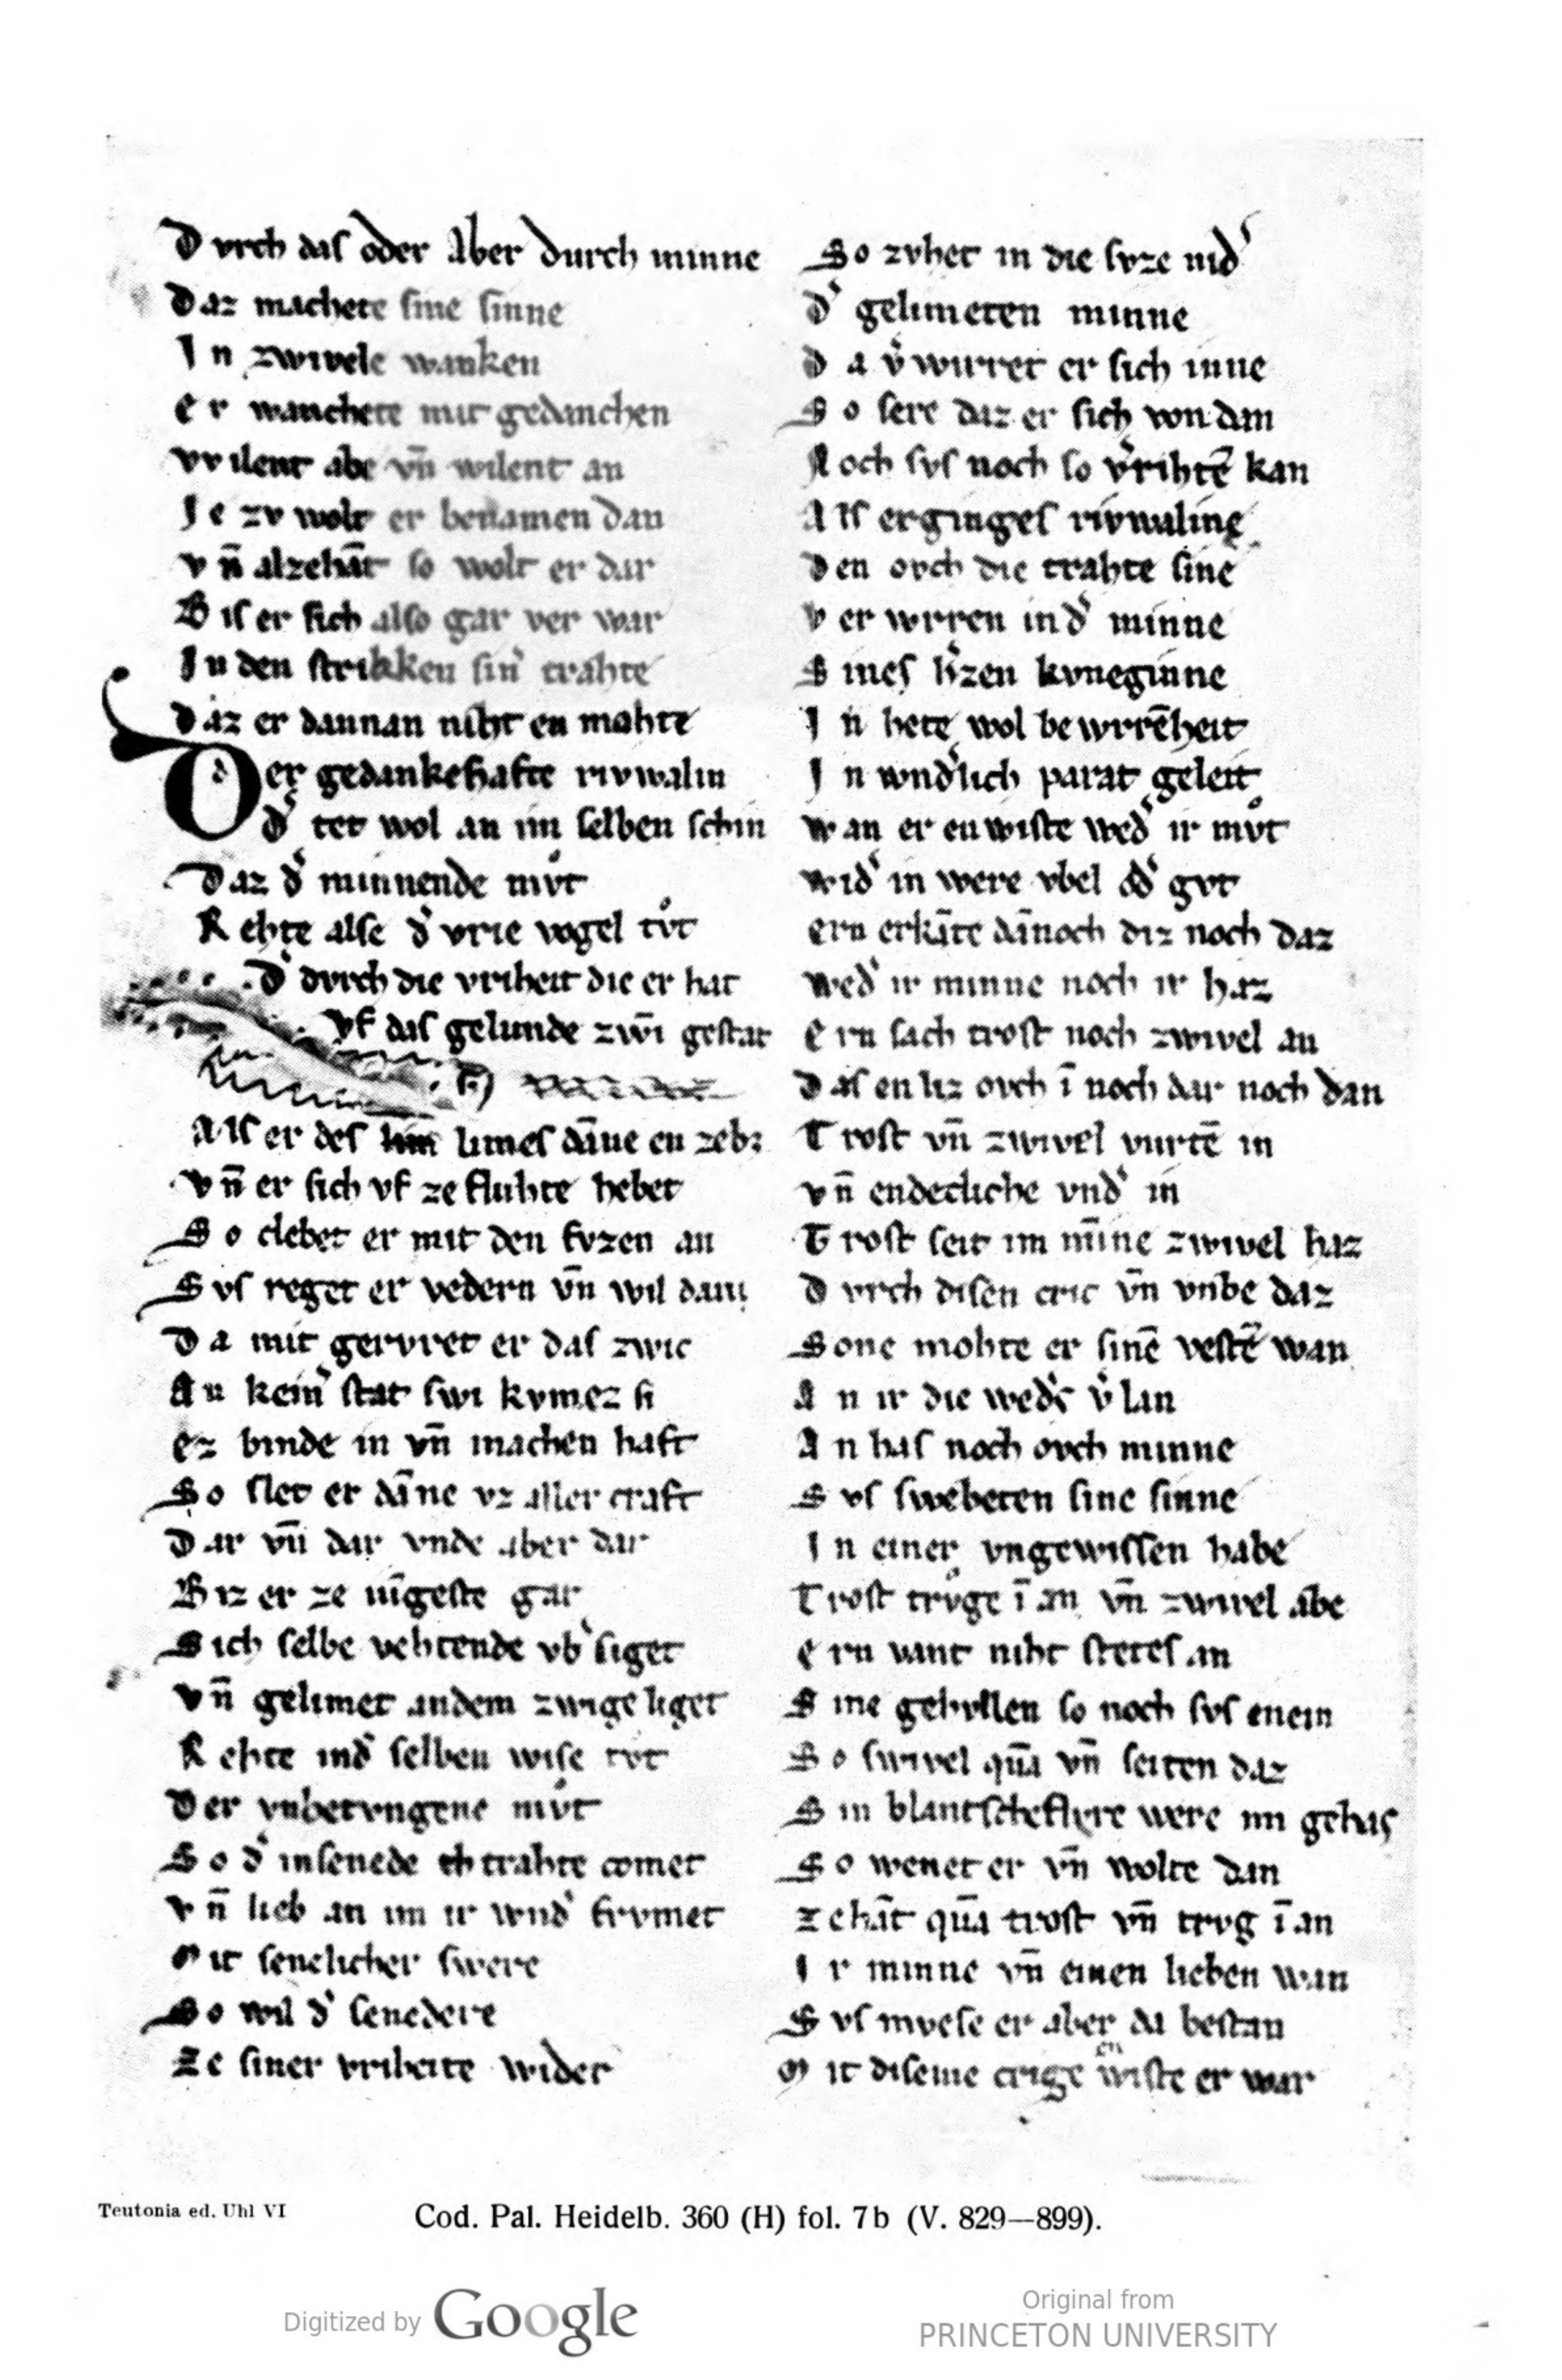 Dvrch daſ oder Aber durch minne
Daz machete ſine ſinne
In zwivele wanken
er wanchete mit gedanchen
wilent abe vn̄ wilent an
Ie zv wolt er benamen dan
vn̄ alzehāt ſo wolt er dar
Biſ er ſich alſo gar ver war
In den ſtrikken ſin̓ trahte
Daz er dannan niht en mohte
Der gedankehafte rivwalin
d̓ tet wol an im ſelben ſchin
Daz d̓ minnende mvͦt
Rehte alſe d̓ vrie vogel tvͦt
D̓ dvrch die vriheit die er hat
Vf daſ gelimde zwı̄ geſtat
Alſ er deſ limeſ dāne en zeb:
vn̄ er ſich vf ze fluhte hebet
So clebet er mit den fvzen an
Svſ reget er vedern vn̄ wil dann
Da mit gervret er daſ zwic
An kein̓ ſtat ſwi kvmez ſi
ez binde in vn̄ machen haft
So ſlet er dāne vz aller craft
Dar vn̄ dar vnde aber dar
Biz er ze ıv̄geſte gar
Sich ſelbe vehtende vb̓ſiget
vn̄ gelimet an dem zwige liget
Rehte ind̓ ſelben wiſe tvͦt
Der vnbetvngene mvͦt
So d̓ inſenede trahte comet
vn̄ lieb an im ir wnd̓ frvmet
Mit ſenelicher ſwere
So wil d̓ ſenedere
Ze ſiner vriheite wider
So zvhet in die ſvze nid̓
d̓ gelimeten minne
da v̓wirret er ſich inne
So ſere daz er ſich von dan
Noch ſvſ noch ſo v̓rihtē kan
Alſ ergingeſ rivwaline
den ovch die trahte ſine
ver wrren ind̓ minne
Sineſ h̓zen kvneginne
In hete wol bewrrēheit
In wnd̓lich parat geleit
wan er en wiſte wed̓ ir mvͦt
wid̓ in were vbel od̓ gvt
ern erkāte dānoch diz noch daz
wed̓ ir minne noch ir haz
ern ſach troſt noch zwivel an
Daſ en liz ovch ī noch dar noch dan
Troſt vn̄ zwivel vurtē in
vn̄ endecliche vnd̓ in
Troſt ſeit im mīne zwivel haz
Dvrch diſen cric vn̄ vnbe daz
Sone mohte er ſinē veſtē wan
An ir die wed̓s v̓lan
An haſ noch ovch minne
Svſ ſwebeten ſine ſinne
In einer vngewiſſen habe
Troſt trvͦge ī an vn̄ zwivel abe
ern vant niht ſteteſ an
Sine gehvllen ſo noch ſvſ enein
So ſwivel quā vn̄ ſeiten daz
Sin blantſcheflvre were im gehaſ
So wenet er vn̄ wolte dan
zehāt quā troſt vn̄ trvg ī an
Ir minne vn̄ einen lieben wan
Svſ mveſe er aber da beſtan
Mit diſeme crige en wiſte er war
Teutonia ed. Uhl VI
Cod. Pal. Heidelb. 360 (H) fol. 7b (V. 829—899).
Digitized by Google
Original from
PRINCETON UNIVERSITY